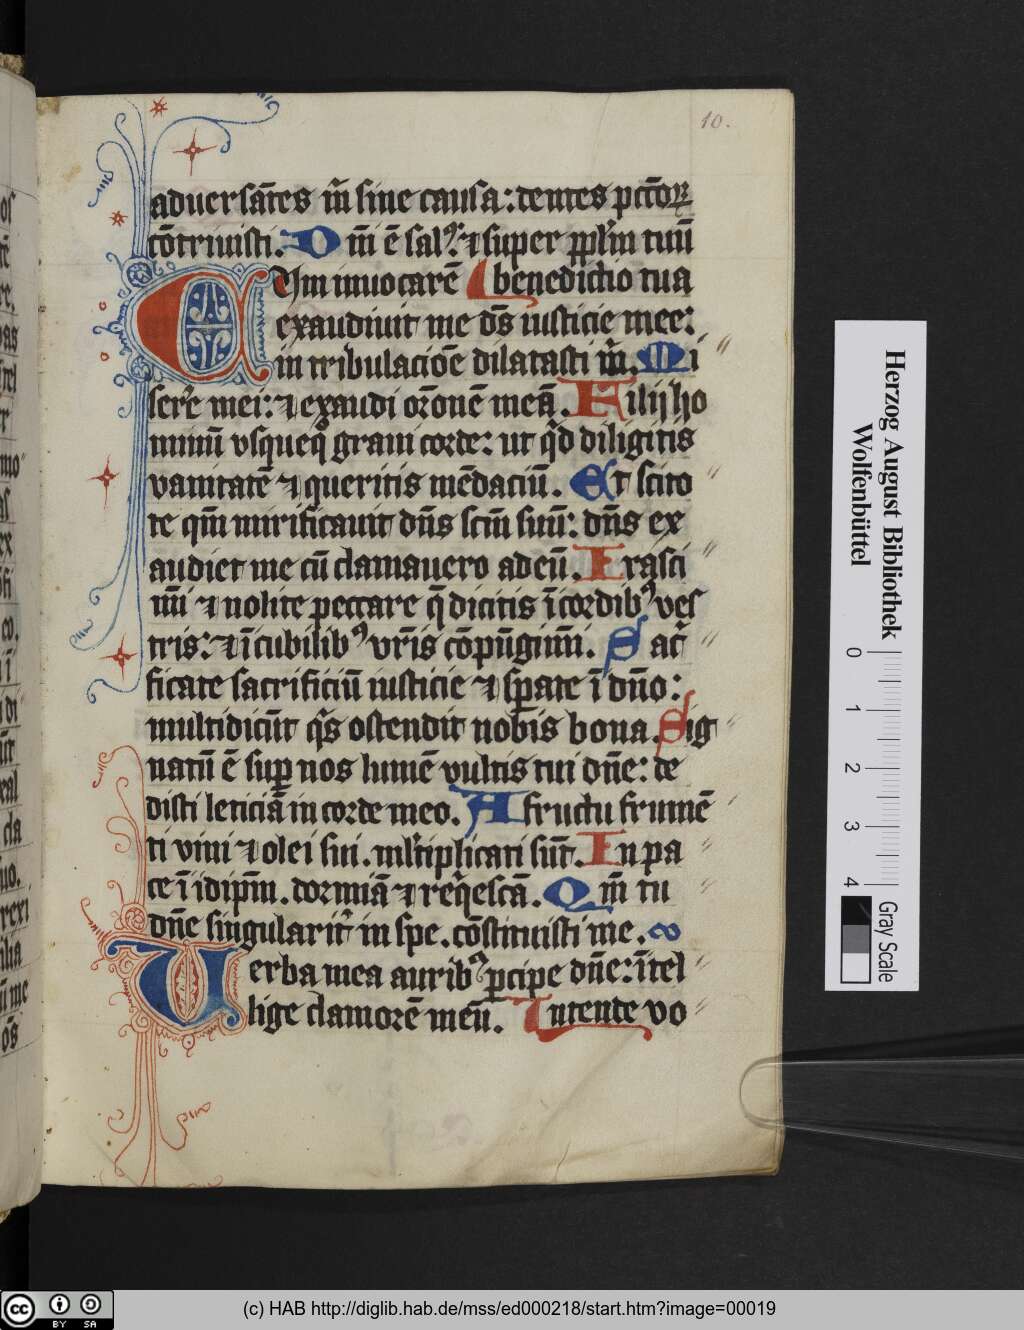 10.
aduersãtes m̃ sine causa: dentes pctõꝝ
cõtriuisti. D m̃ ẽ sal⁹: ⁊ super pplm̃ tuũ
Cum inuocarẽ benedictio tua
exaudiuit me dẽs iusticie mee:
in tribulacioẽ dilatasti m̃. Mi
serẽ mei: ⁊ exaudi oꝛonẽ meã. Filij ho
minũ vsqueq̃ graui corde: ut q̃d diligitis
vanitatẽ ⁊ queritis mẽdaciũ. Et scito
te qm̃ mirificauit dñs scm̃ suũ: dñs ex
audiet me cũ clamauero ad eũ. Irasci
mĩ ⁊ nolite peccare q̃ dicitis ĩ coꝛdib⁹ ves
tris: ⁊ ĩ cubilib⁹ vr̃is cõpũgimĩ. Sac̃
ficate sacrificiũ iusticie ⁊ sꝑate ĩ dño:
multi dicũt q̃s ostendit nobis bona. Sig
natũ ẽ suꝑ nos lumẽ vultis tui dñe: de
disti leticiã in corde meo. A fructu frumẽ
ti vini ⁊ olei sui. ml̃tiplicati sũt. In pa
ce ĩ idipm̃. dormiã ⁊ req̃escã. Qm̃ tu
dñe singularit̾ in spe. cõstituisti me.
Verba mea aurib⁹ ꝑcipe dñe: ĩtel
lige clamorẽ meũ. Intente vo
Herzog August Bibliothek
Wolfenbüttel
0 1 2 3 4
Gray Scale
cc BY SA
(c) HAB http://diglib.hab.de/mss/ed000218/start.htm?image=00019